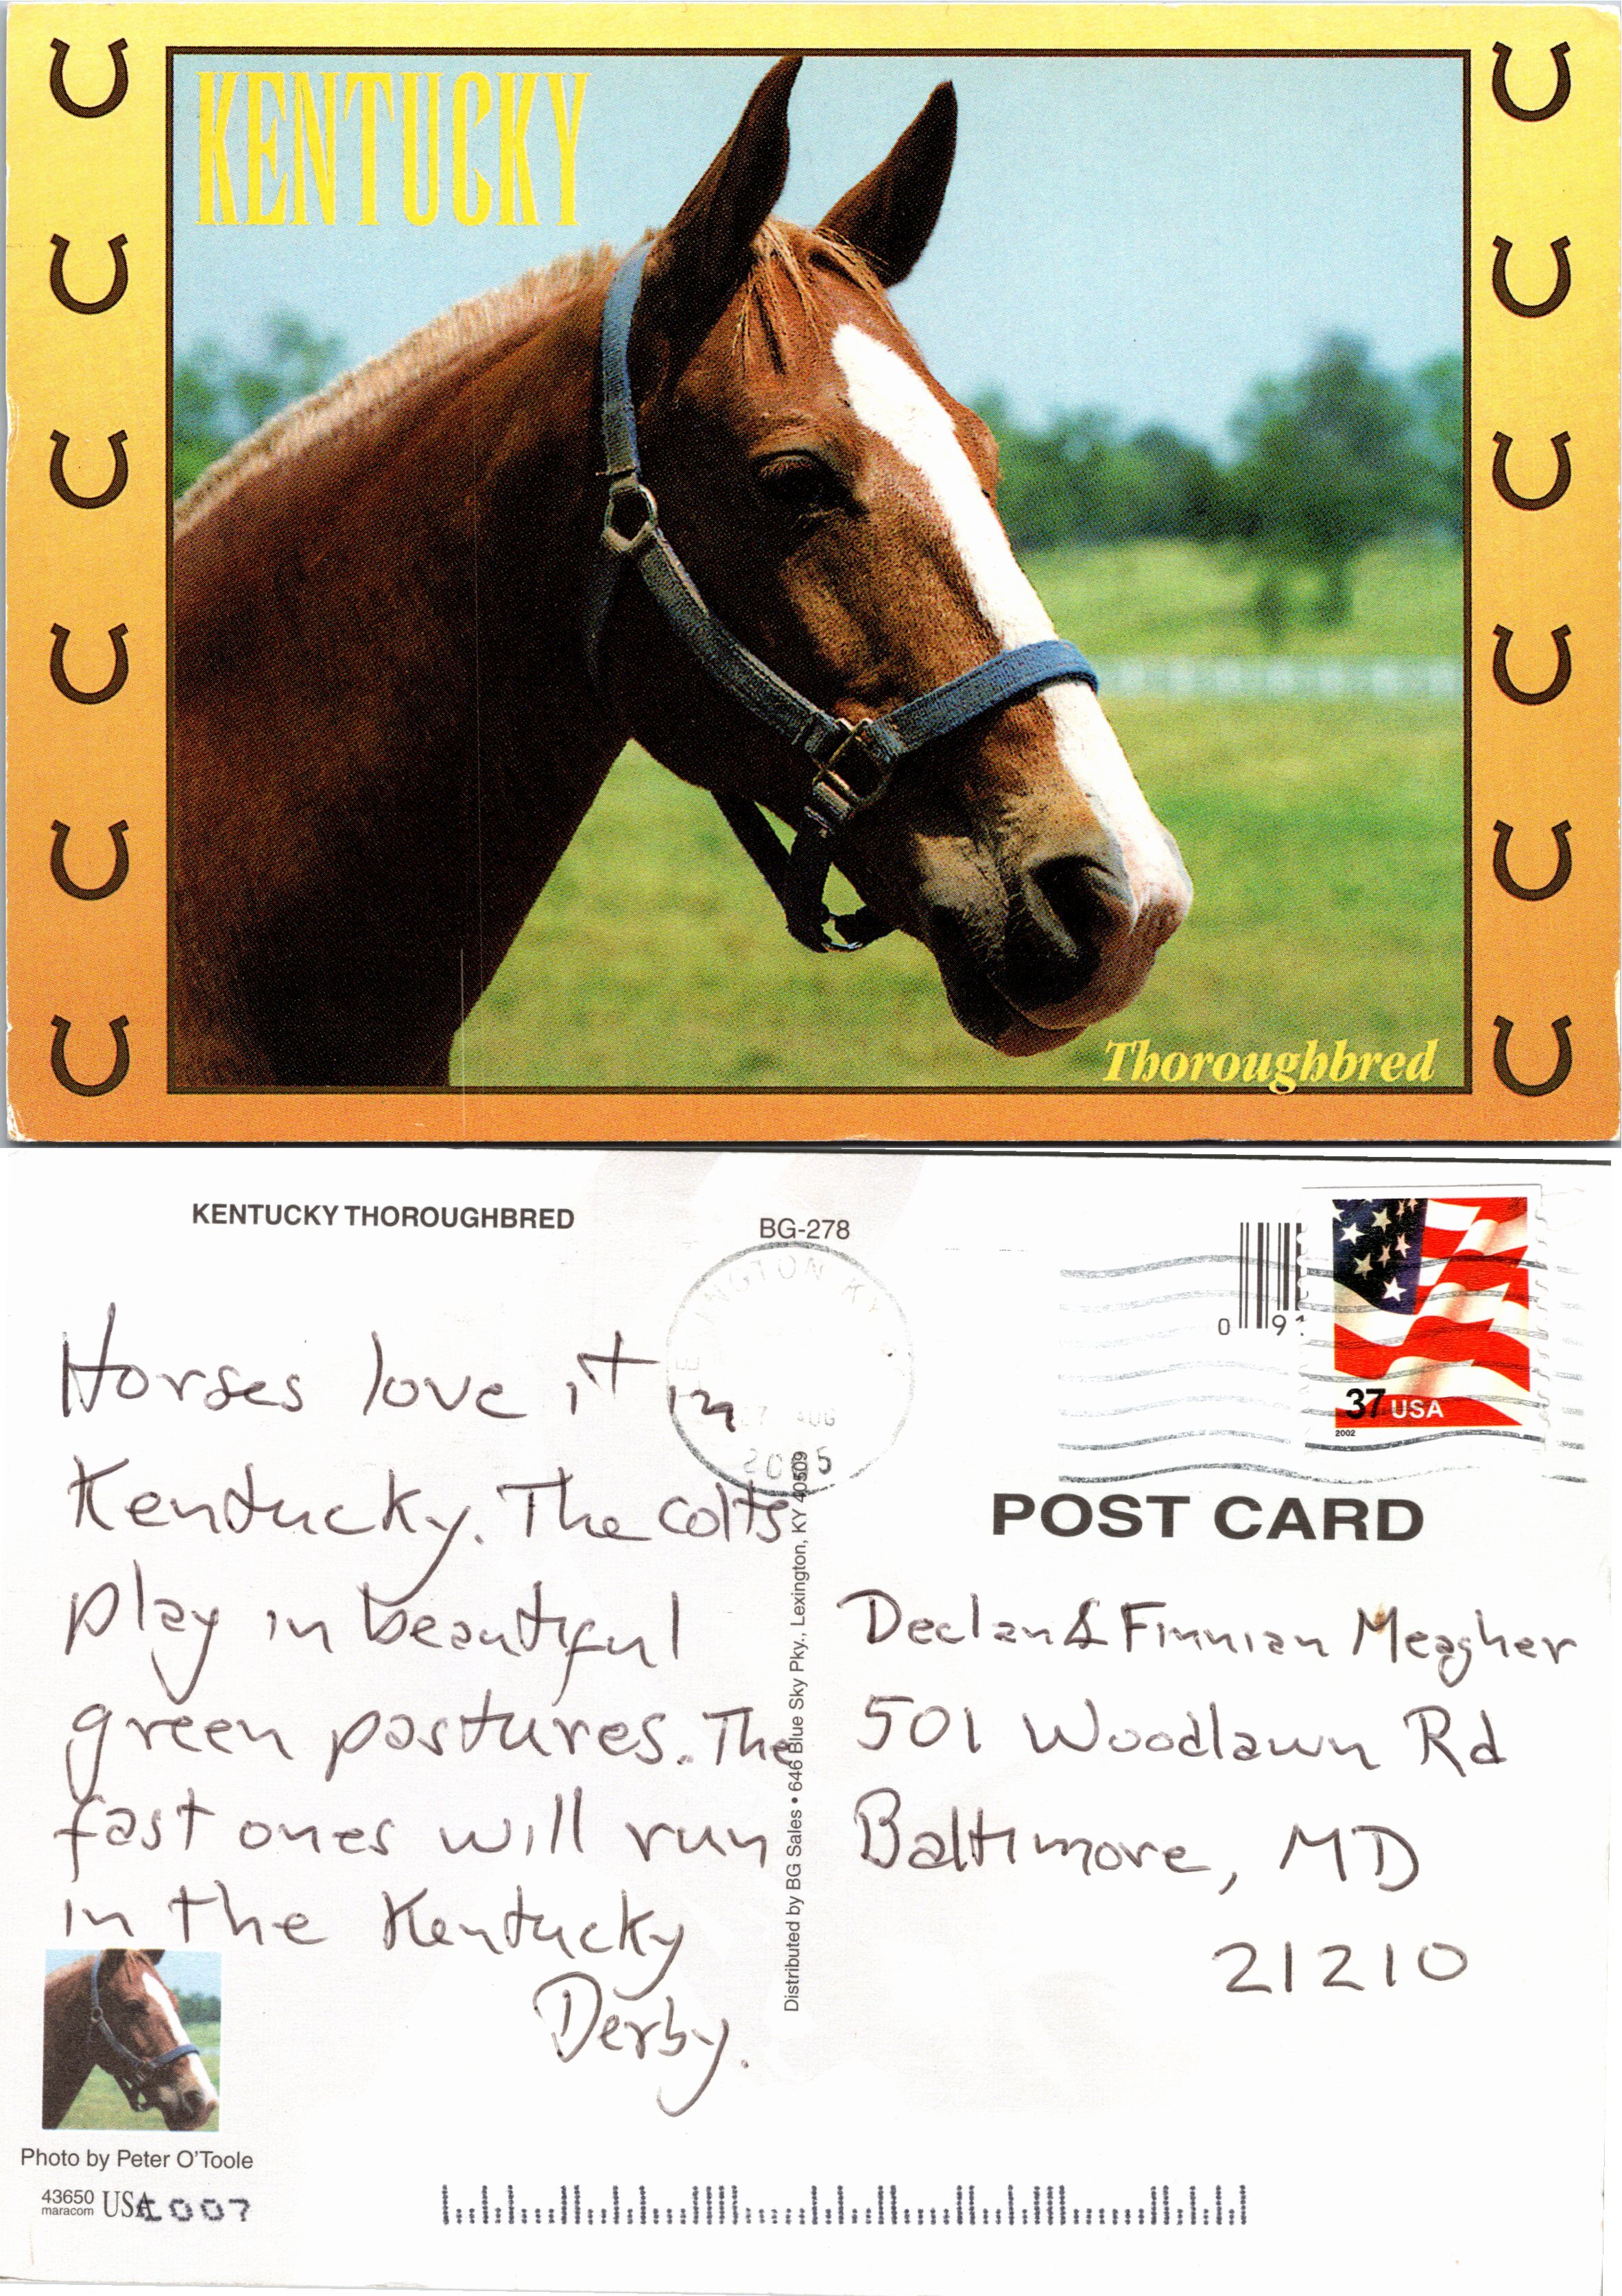 KENTUCKY
Thoroughbred
KENTUCKY THOROUGHBRED
BG-278
INGTON KY
27 AUG
2005
0 9
37 USA
2002
POST CARD
Horses love it in
Kentucky. The colts
play in beautiful
green pastures. The
fast ones will run
in the Kentucky
Derby.
Distributed by BG Sales • 646 Blue Sky Pky., Lexington, KY 40509
Declan & Finnian Meagher
501 Woodlawn Rd
Baltimore, MD
21210
Photo by Peter O'Toole
43650
maracom
USA